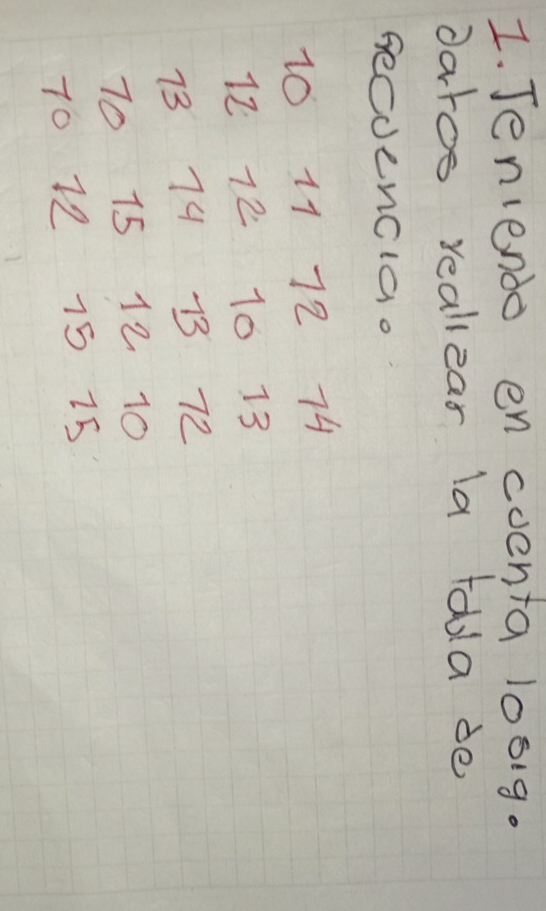 1. Teniendo en cuenta los sig.
datos realizar la tabla de
frecuencia.
10 11 12 14
12 12 10 13
13 14 13 12
10 15 12 10
10 12 15 15